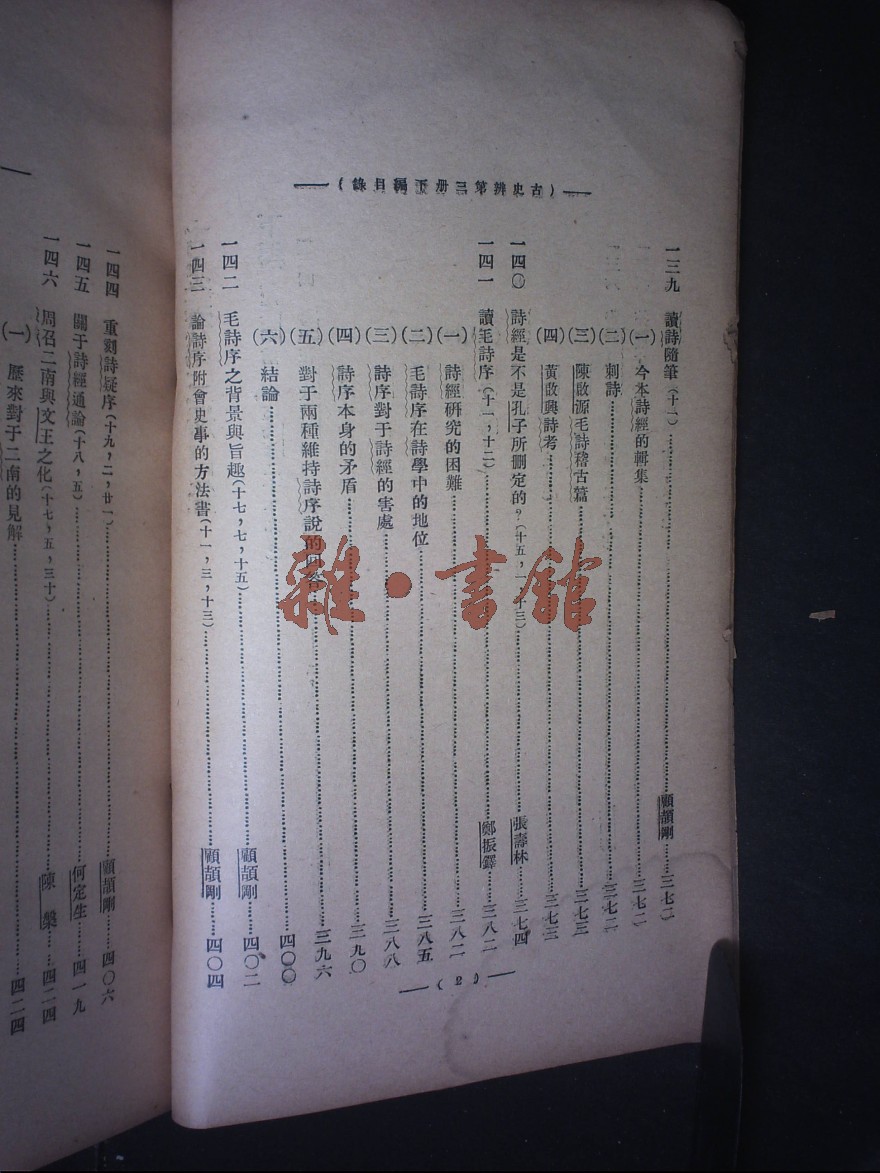 （古史辨第三册下編目錄）
一三九 讀詩隨筆（十二）……顧頡剛……三七二
（一）今本詩經的輯集……三七二
（二）刺詩……三七二
（三）陳啟源毛詩稽古篇……三七三
（四）黃啟興詩考……三七三
一四〇 詩經是不是孔子所刪定的？（十五，一，十三）……張壽林……三七四
一四一 讀毛詩序（十一，十二）……鄭振鐸……三八二
（一）詩經研究的困難……三八二
（二）毛詩序在詩學中的地位……三八五
（三）詩序對于詩經的害處……三八八
（四）詩序本身的矛盾……三九〇
（五）對于兩種維持詩序說的回答……三九六
（六）結論……四〇〇
一四二 毛詩序之背景與旨趣（十七，七，十五）……顧頡剛……四〇二
一四三 論詩序附會史事的方法書（十一，三，十三）……顧頡剛……四〇四
（2）
一四四 重刻詩疑序（十九，二，廿一）……顧頡剛……四〇六
一四五 關于詩經通論（十八，五）……何定生……四一九
一四六 周召二南與文王之化（十七，五，三十）……陳槃……四二四
（一）歷來對于二南的見解……四二四
雜·書館